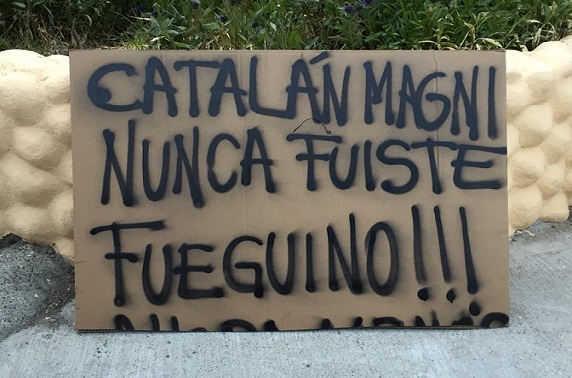 CATALÁN MAGNI
NUNCA FUISTE
FUEGUINO!!!